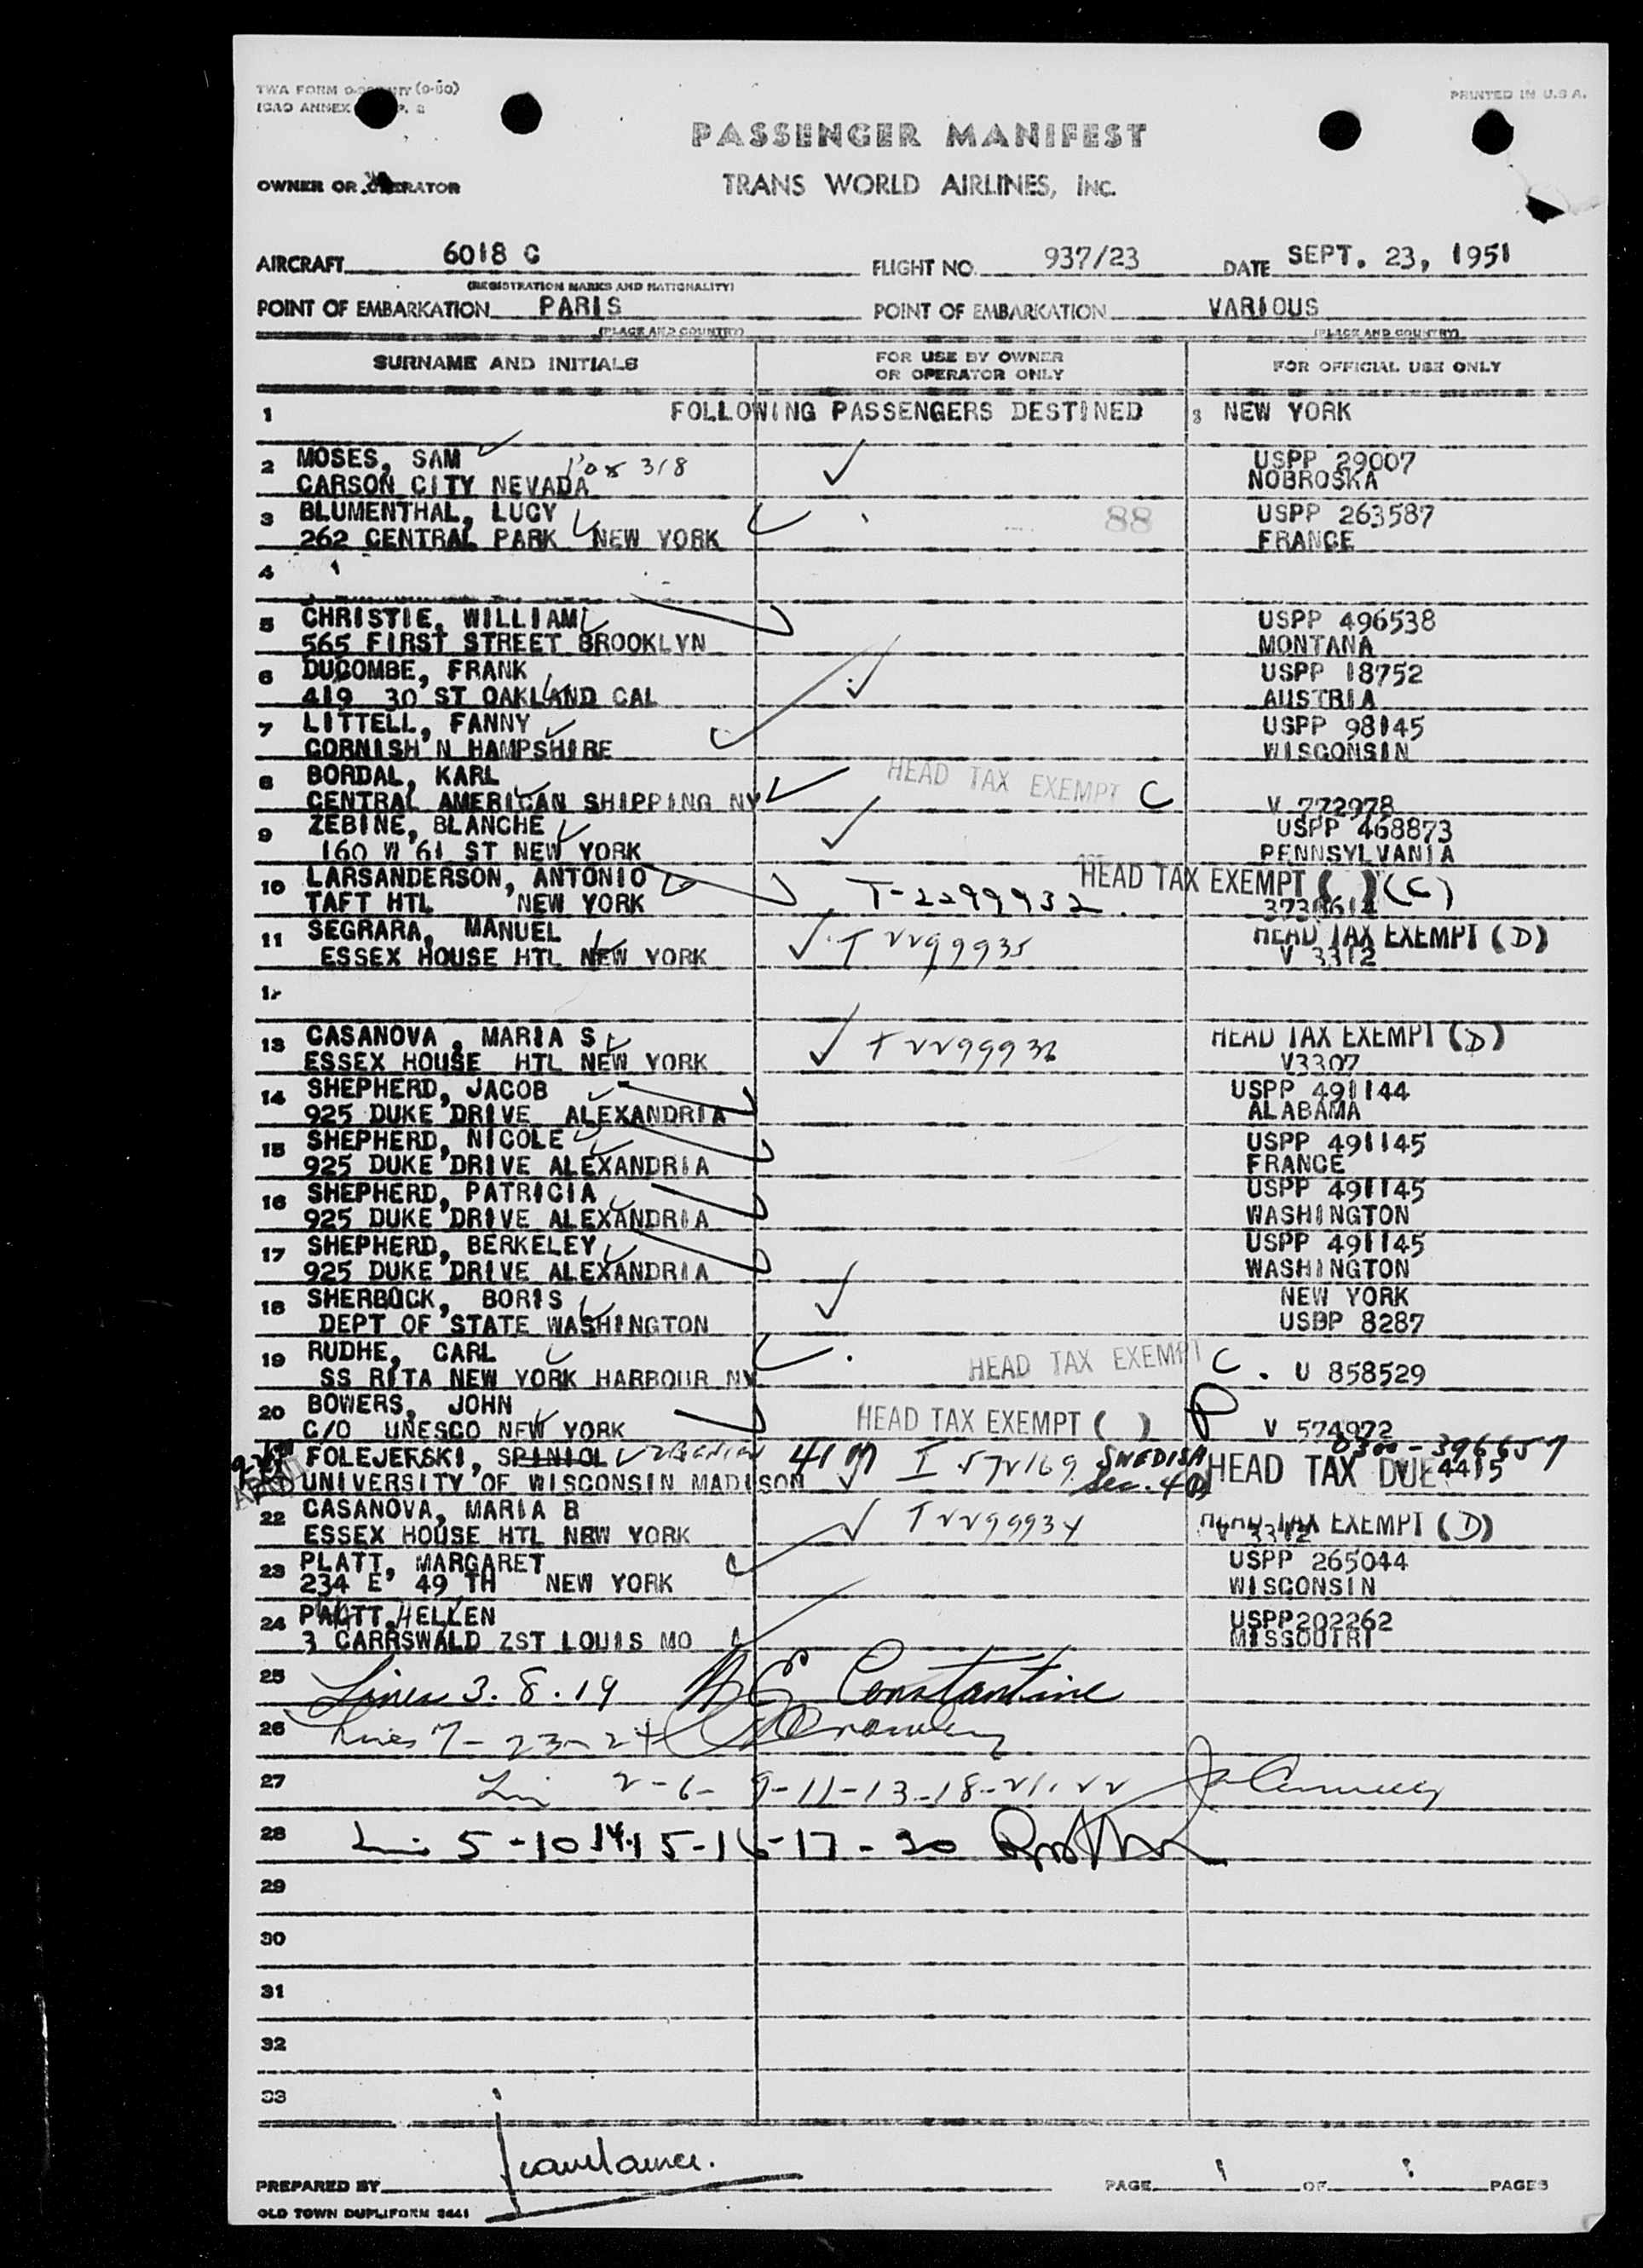 TWA FORM (0-50)
PRINTED IN U.S.A.
ICAO ANNEX P. 2
PASSENGER MANIFEST
OWNER OR OPERATOR
TRANS WORLD AIRLINES, INC.
AIRCRAFT 6018 C FLIGHT NO. 937/23 DATE SEPT. 23, 1951
(REGISTRATION MARKS AND NATIONALITY)
POINT OF EMBARKATION PARIS POINT OF EMBARKATION VARIOUS
(PLACE AND COUNTRY) (PLACE AND COUNTRY)
SURNAME AND INITIALS FOR USE BY OWNER OR OPERATOR ONLY FOR OFFICIAL USE ONLY
1 FOLLOWING PASSENGERS DESTINED : NEW YORK
2 MOSES, SAM USPP 29007
CARSON CITY NEVADA 318 NOBROSKA
3 BLUMENTHAL, LUCY 88 USPP 263587
262 CENTRAL PARK NEW YORK FRANCE
4
5 CHRISTIE, WILLIAM USPP 496538
565 FIRST STREET BROOKLYN MONTANA
6 DUCOMBE, FRANK USPP 18752
419 30 ST OAKLAND CAL AUSTRIA
7 LITTELL, FANNY USPP 98145
CORNISH N HAMPSHIRE WISCONSIN
8 BORDAL, KARL HEAD TAX EXEMPT C
CENTRAL AMERICAN SHIPPING NY V 772978
9 ZEBINE, BLANCHE USPP 468873
160 W 61 ST NEW YORK PENNSYLVANIA
10 LARSANDERSON, ANTONIO HEAD TAX EXEMPT ( ) (C)
TAFT HTL NEW YORK T-2299932
11 SEGRARA, MANUEL T 2299935 HEAD TAX EXEMPT (D)
ESSEX HOUSE HTL NEW YORK V 3312
12
13 CASANOVA, MARIA S HEAD TAX EXEMPT (D)
ESSEX HOUSE HTL NEW YORK V3307
14 SHEPHERD, JACOB USPP 491144
925 DUKE DRIVE ALEXANDRIA ALABAMA
15 SHEPHERD, NICOLE USPP 491145
925 DUKE DRIVE ALEXANDRIA FRANCE
16 SHEPHERD, PATRICIA USPP 491145
925 DUKE DRIVE ALEXANDRIA WASHINGTON
17 SHEPHERD, BERKELEY USPP 491145
925 DUKE DRIVE ALEXANDRIA WASHINGTON
18 SHERBOCK, BORIS NEW YORK
DEPT OF STATE WASHINGTON USDP 8287
19 RUDHE, CARL HEAD TAX EXEMPT C
SS RITA NEW YORK HARBOUR NY U 858529
20 BOWERS, JOHN HEAD TAX EXEMPT ( ) D
C/O UNESCO NEW YORK V 574972
FOLEJEFSKI, SPINIOL 41 M I 572169 SWEDISH 0300-396657
UNIVERSITY OF WISCONSIN MADISON Sec. 4 HEAD TAX DUE 4415
22 CASANOVA, MARIA B T 2299934 HEAD TAX EXEMPT (D)
ESSEX HOUSE HTL NEW YORK
23 PLATT, MARGARET USPP 265044
234 E 49 TH NEW YORK WISCONSIN
24 HELLEN USPP202262
3 CARRSWALD ZST LOUIS MO MISSOUIRI
25 Lines 3. 8. 19 Constantine
26 Lines 7-23-24
27 2-6-9-11-13-18-21.22
28 L: 5-10 14.15-16-17-20
29
30
31
32
33
PREPARED BY PAGE 1 OF PAGES
OLD TOWN DUPLIFORM 8441